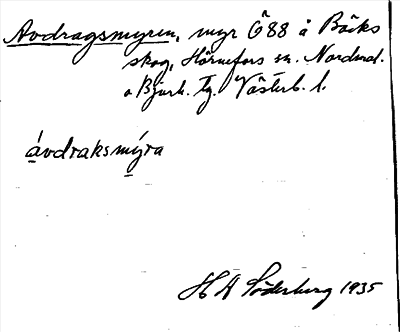 Avdragsmyren, myr Ö88 å Bäcks
skog, Hörnefors sn. Nordmal.
o Bjurh. tg. Västerb. l.
ávdraksmýra
H A Söderberg 1935